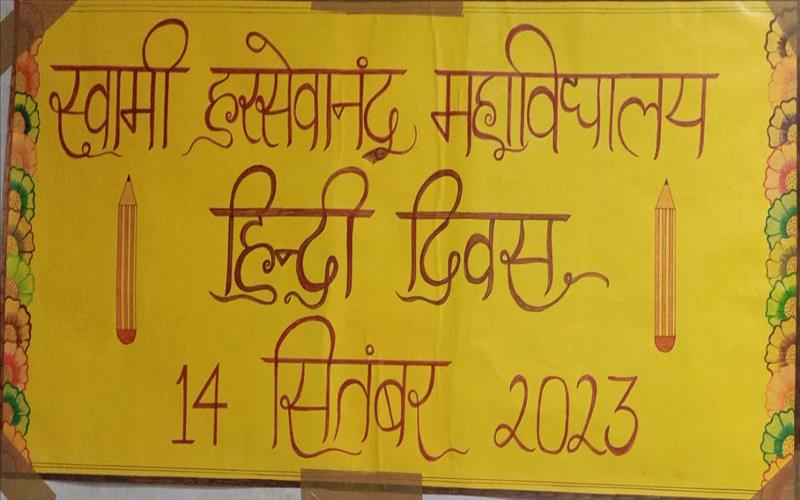 स्वामी हरसेवानंद महाविद्यालय
हिन्दी दिवस
14 सितंबर 2023